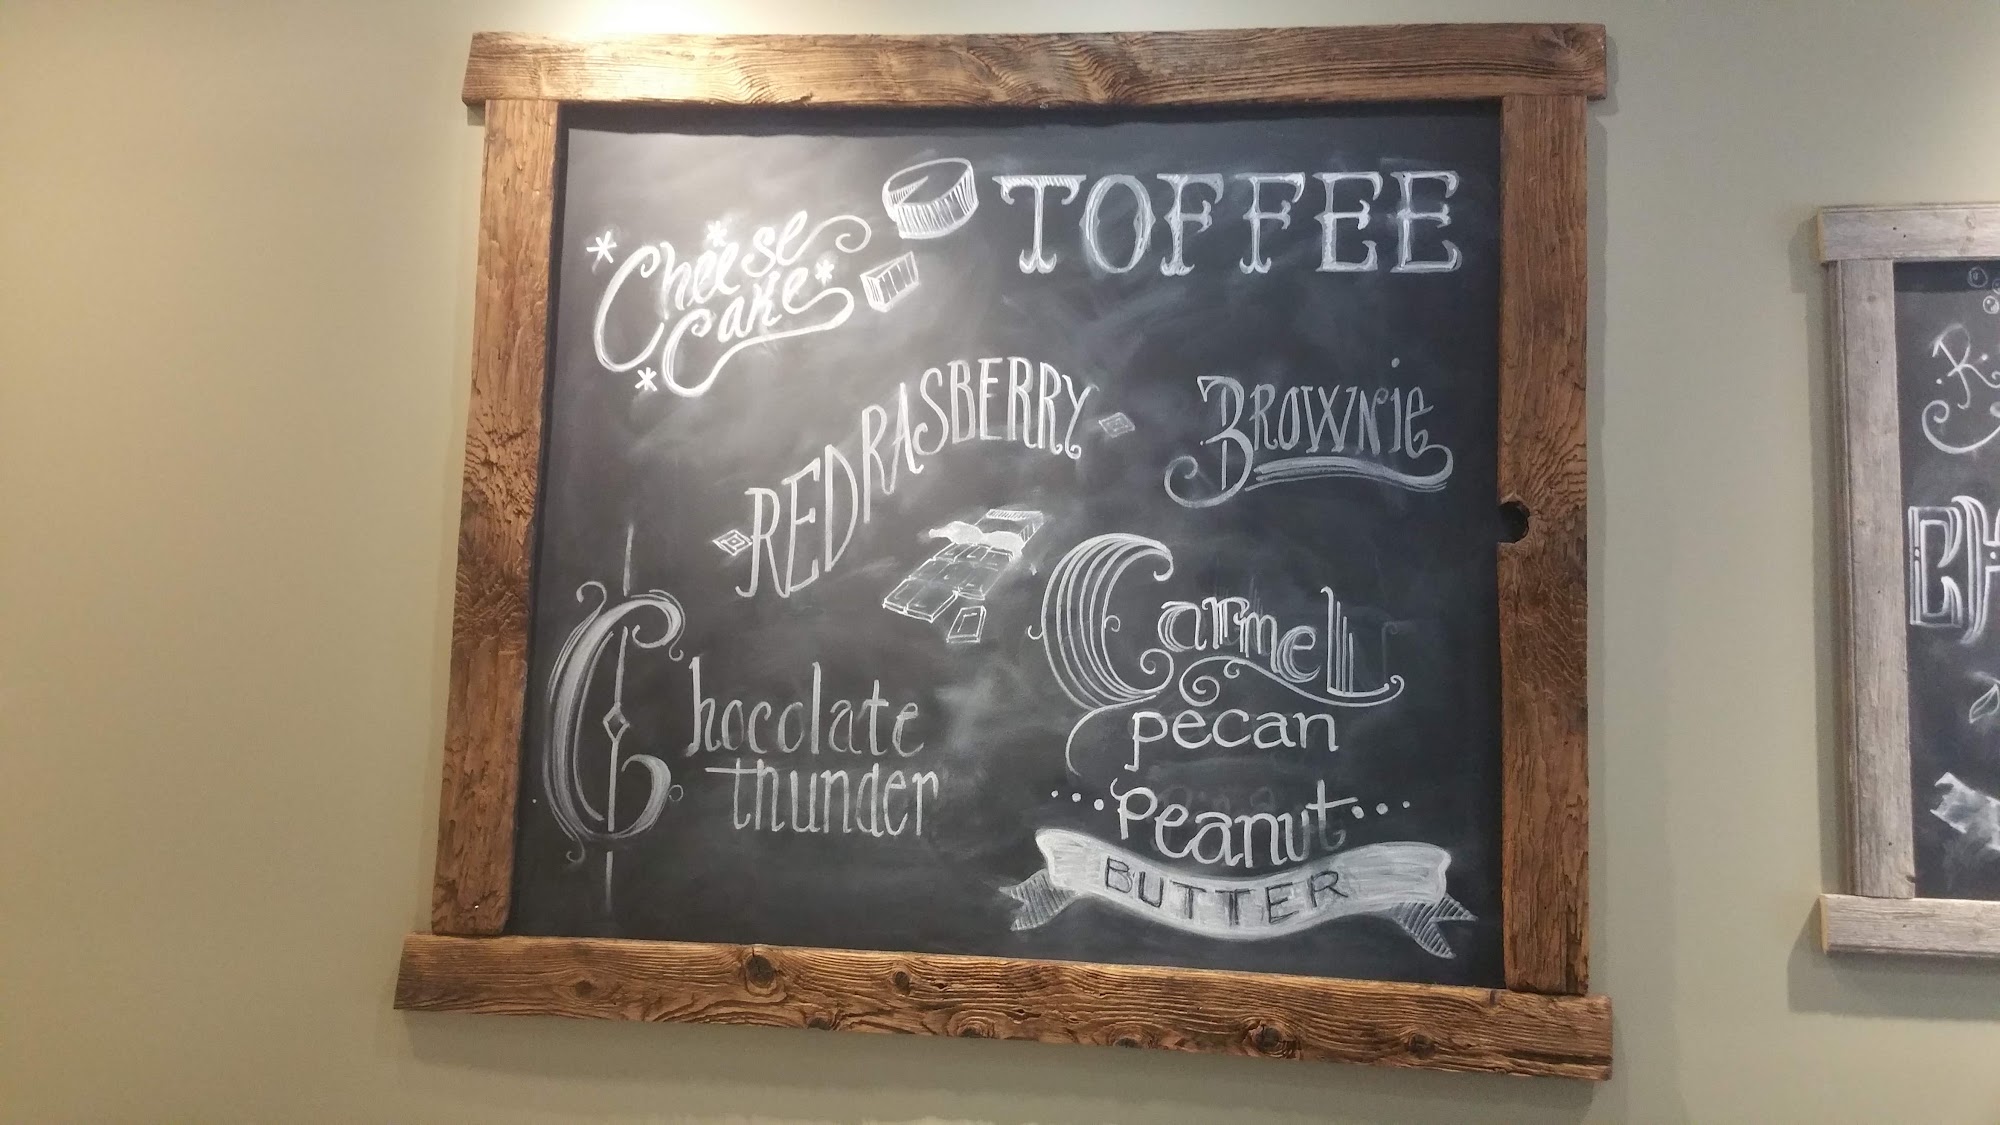 Cheese
Cake
TOFFEE
RED RASBERRY
BROWNiE
Chocolate
thunder
Carmel
pecan
...Peanut...
BUTTER